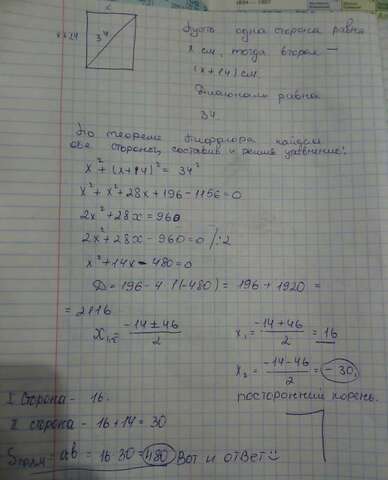 x
34
x+14
Пусть одна сторона равна
x см, тогда вторая —
(x+14) см.
Диагональ равна
34.
По теореме Пифагора найдем
обе стороны, составив и решив уравнение:
x² + (x+14)² = 34²
x² + x² + 28x + 196 - 1156 = 0
2x² + 28x = 960
2x² + 28x - 960 = 0 /:2
x² + 14x - 480 = 0
D = 196 - 4 · (-480) = 196 + 1920 =
= 2116
x₁,₂ = (-14 ± 46)/2
x₁ = (-14 + 46)/2 = 16
x₂ = (-14 - 46)/2 = -30,
посторонний корень.
I сторона - 16.
II сторона - 16 + 14 = 30
Sпрям = ab = 16 · 30 = 480 Вот и ответ